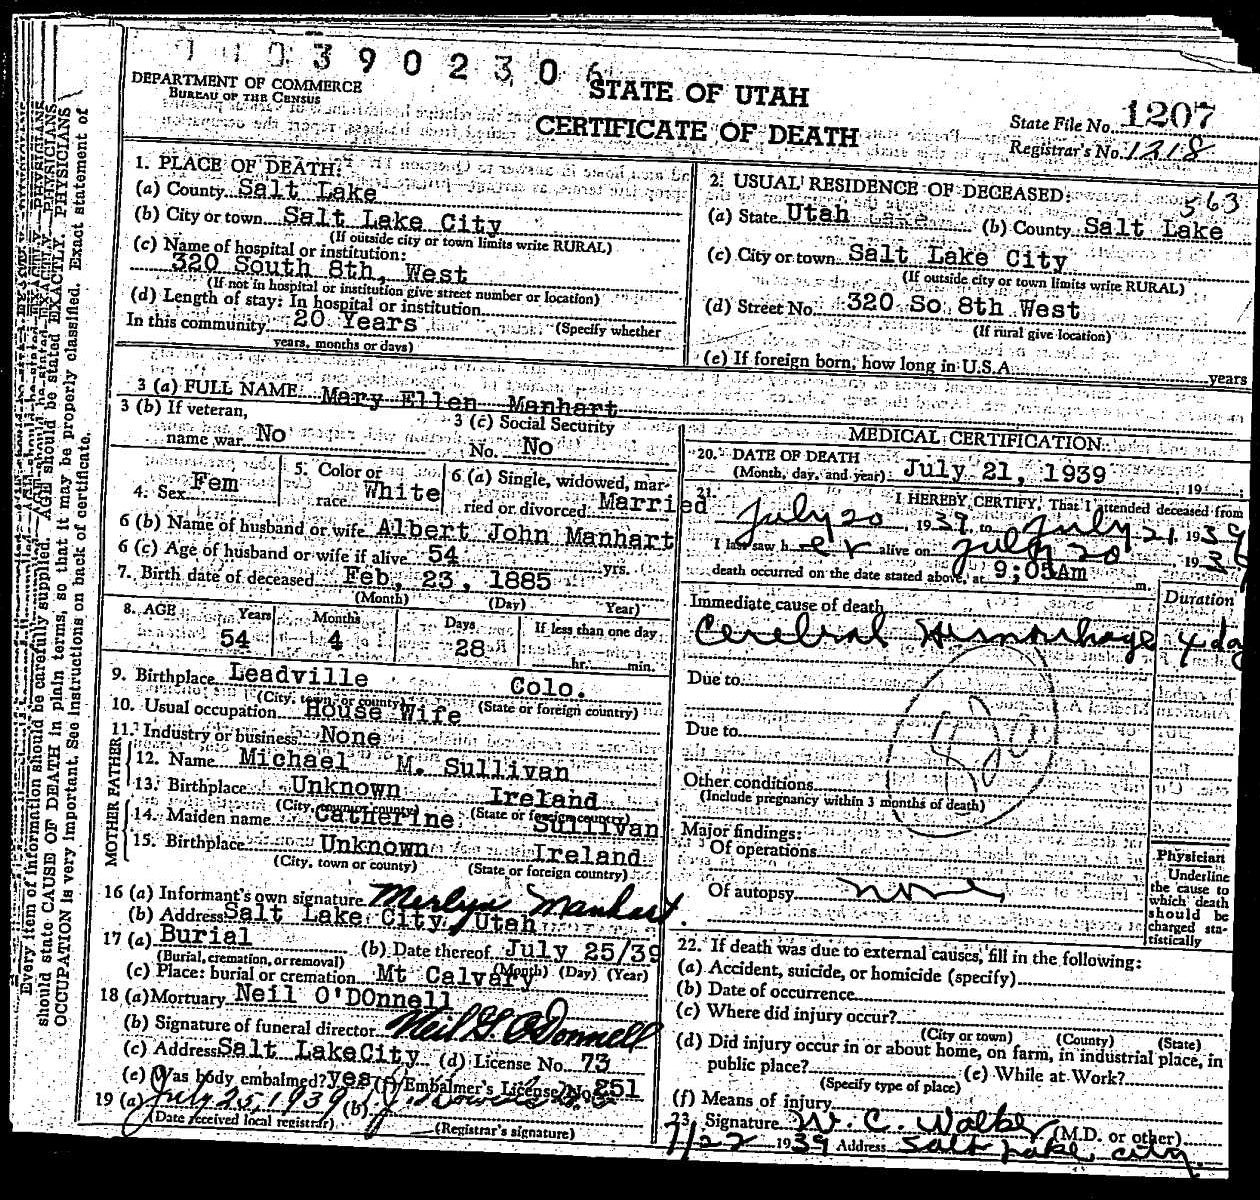 390230
DEPARTMENT OF COMMERCE
BUREAU OF THE CENSUS
STATE OF UTAH
CERTIFICATE OF DEATH
State File No. 1207
Registrar's No. 1218
1. PLACE OF DEATH:
(a) County Salt Lake
(b) City or town Salt Lake City
(If outside city or town limits write RURAL)
(c) Name of hospital or institution:
320 South 8th, West
(If not in hospital or institution give street number or location)
(d) Length of stay: In hospital or institution
In this community 20 Years (Specify whether
years, months or days)
2. USUAL RESIDENCE OF DECEASED:
563
(a) State Utah (b) County Salt Lake
(c) City or town Salt Lake City
(If outside city or town limits write RURAL)
(d) Street No. 320 So. 8th West
(If rural give location)
(e) If foreign born, how long in U.S.A. years
3 (a) FULL NAME Mary Ellen Manhart
3 (b) If veteran,
name war No
3 (c) Social Security
No. No
4. Sex Fem
5. Color or
race White
6 (a) Single, widowed, mar-
ried or divorced Married
6 (b) Name of husband or wife Albert John Manhart
6 (c) Age of husband or wife if alive 54 yrs.
7. Birth date of deceased Feb, 23, 1885
(Month) (Day) Year)
8. AGE Years Months Days If less than one day
54 4 28 hr. min.
9. Birthplace Leadville Colo.
(City, town, or county) (State or foreign country)
10. Usual occupation House Wife
11. Industry or business None
FATHER
12. Name Michael M. Sullivan
13. Birthplace Unknown Ireland
(City, town or county) (State or foreign country)
MOTHER
14. Maiden name Catherine Sullivan
15. Birthplace Unknown Ireland
(City, town or county) (State or foreign country)
16 (a) Informant's own signature Merlyn Manhart
(b) Address Salt Lake City, Utah
17 (a) Burial (b) Date thereof July 25/39
(Burial, cremation, or removal) (Month) (Day) (Year)
(c) Place: burial or cremation Mt Calvary
18 (a) Mortuary Neil O'DOnnell
(b) Signature of funeral director Neil G. O'Donnell
(c) Address Salt LakeCity (d) License No. 73
(e) Was body embalmed? yes (f) Embalmer's License No. 251
19 (a) July 25, 1939 (b)
(Date received local registrar) (Registrar's signature)
MEDICAL CERTIFICATION
20. DATE OF DEATH
(Month, day, and year) July 21, 1939 19
21. I HEREBY CERTIFY, That I attended deceased from
July 20, 1939 to July 21 1939
I last saw her alive on July 20 1939
death occurred on the date stated above, at 9;05Am m.
Immediate cause of death Duration
Cerebral Hemorrhage 4 day
Due to
Due to
Other conditions
(Include pregnancy within 3 months of death)
Major findings:
Of operations
Of autopsy none
Physician
Underline
the cause to
which death
should be
charged sta-
tistically
22. If death was due to external causes, fill in the following:
(a) Accident, suicide, or homicide (specify)
(b) Date of occurrence
(c) Where did injury occur?
(City or town) (County) (State)
(d) Did injury occur in or about home, on farm, in industrial place, in
public place? (e) While at Work?
(Specify type of place)
(f) Means of injury
23. Signature W. C. Walker (M.D. or other)
7/22 1939 Address Salt Lake City.
Every item of information should be carefully supplied. AGE should be stated EXACTLY. PHYSICIANS
should state CAUSE OF DEATH in plain terms, so that it may be properly classified. Exact statement of
OCCUPATION is very important. See instructions on back of certificate.